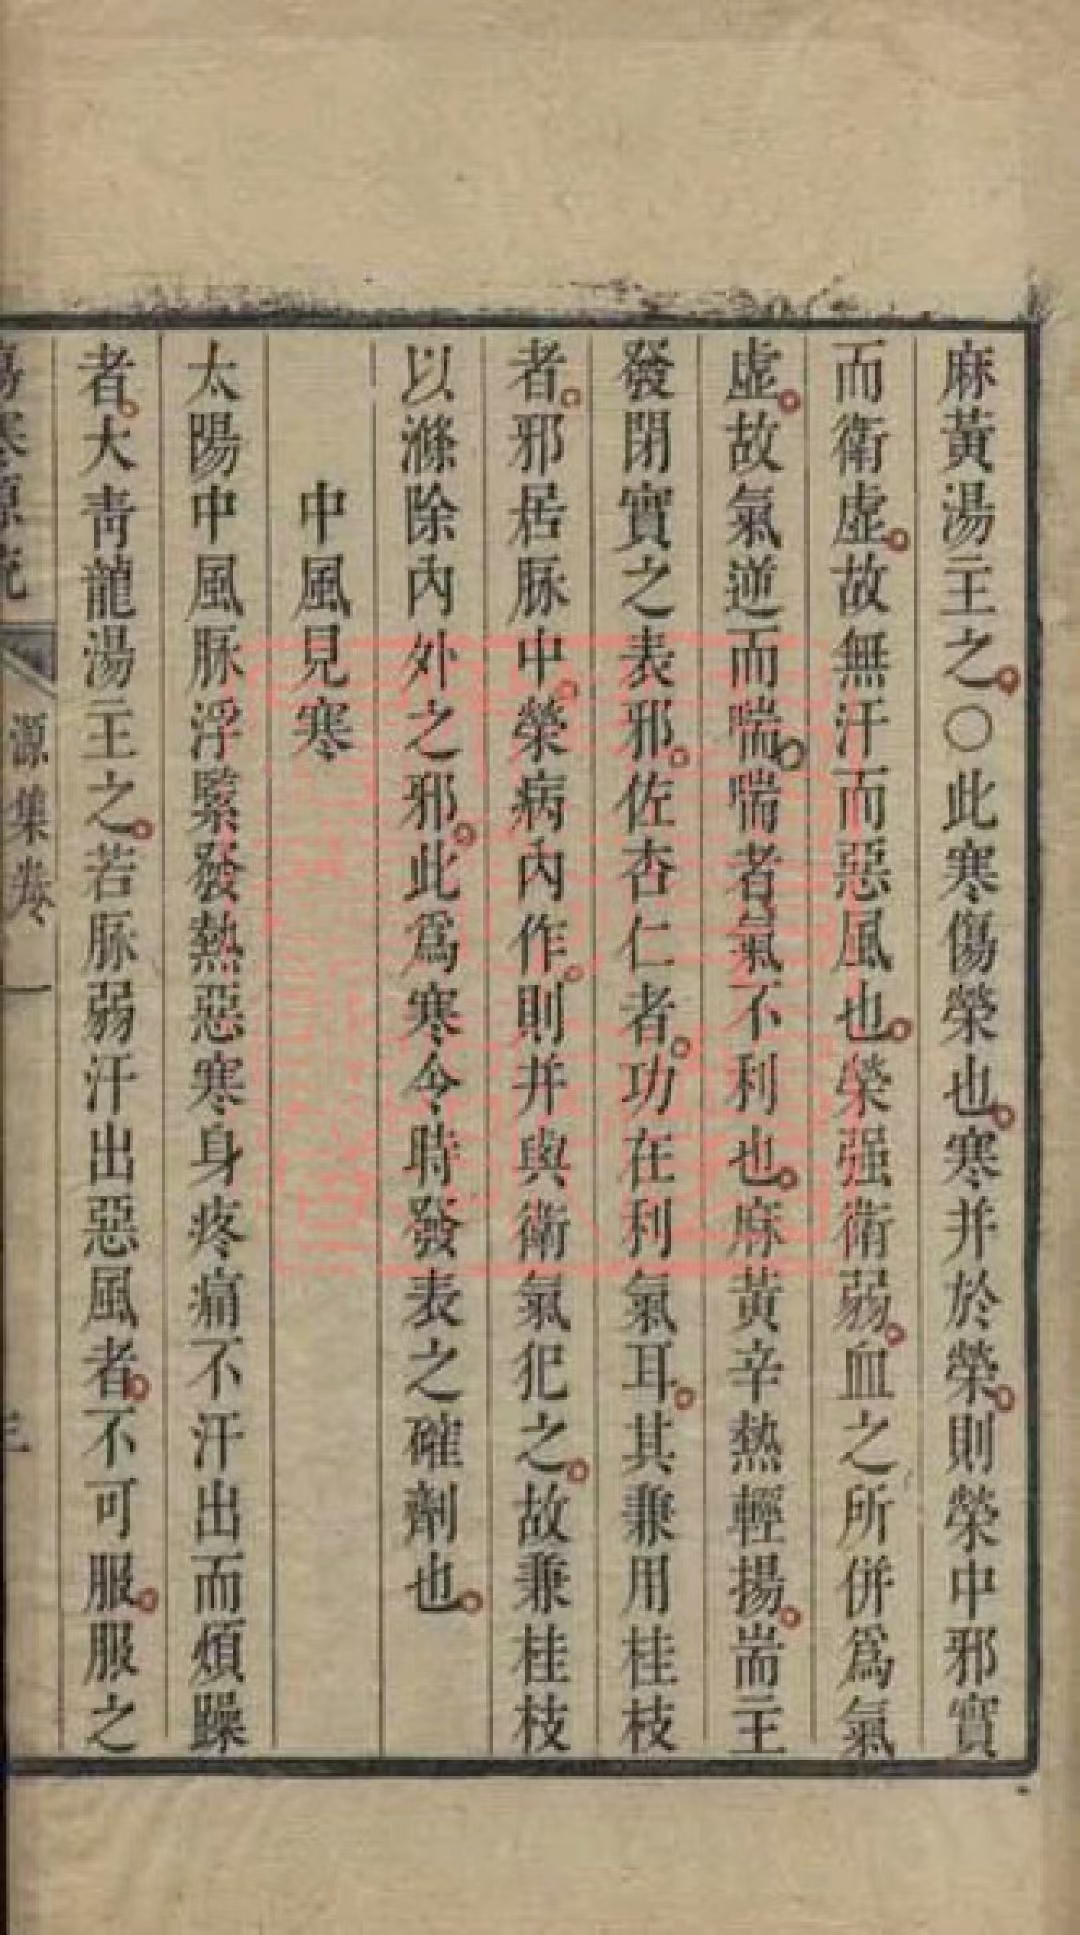 麻黃湯主之○此寒傷榮也寒并於榮則榮中邪實
而衛虛故無汗而惡風也榮强衛弱血之所併爲氣
虛故氣逆而喘喘者氣不利也麻黃辛熱輕揚耑主
發閉實之表邪佐杏仁者功在利氣耳其兼用桂枝
者邪居脈中榮病內作則并與衛氣犯之故兼桂枝
以滌除內外之邪此爲寒令時發表之確劑也
中風見寒
太陽中風脈浮緊發熱惡寒身疼痛不汗出而煩躁
者大青龍湯主之若脈弱汗出惡風者不可服服之
傷寒源流 源集卷一 三